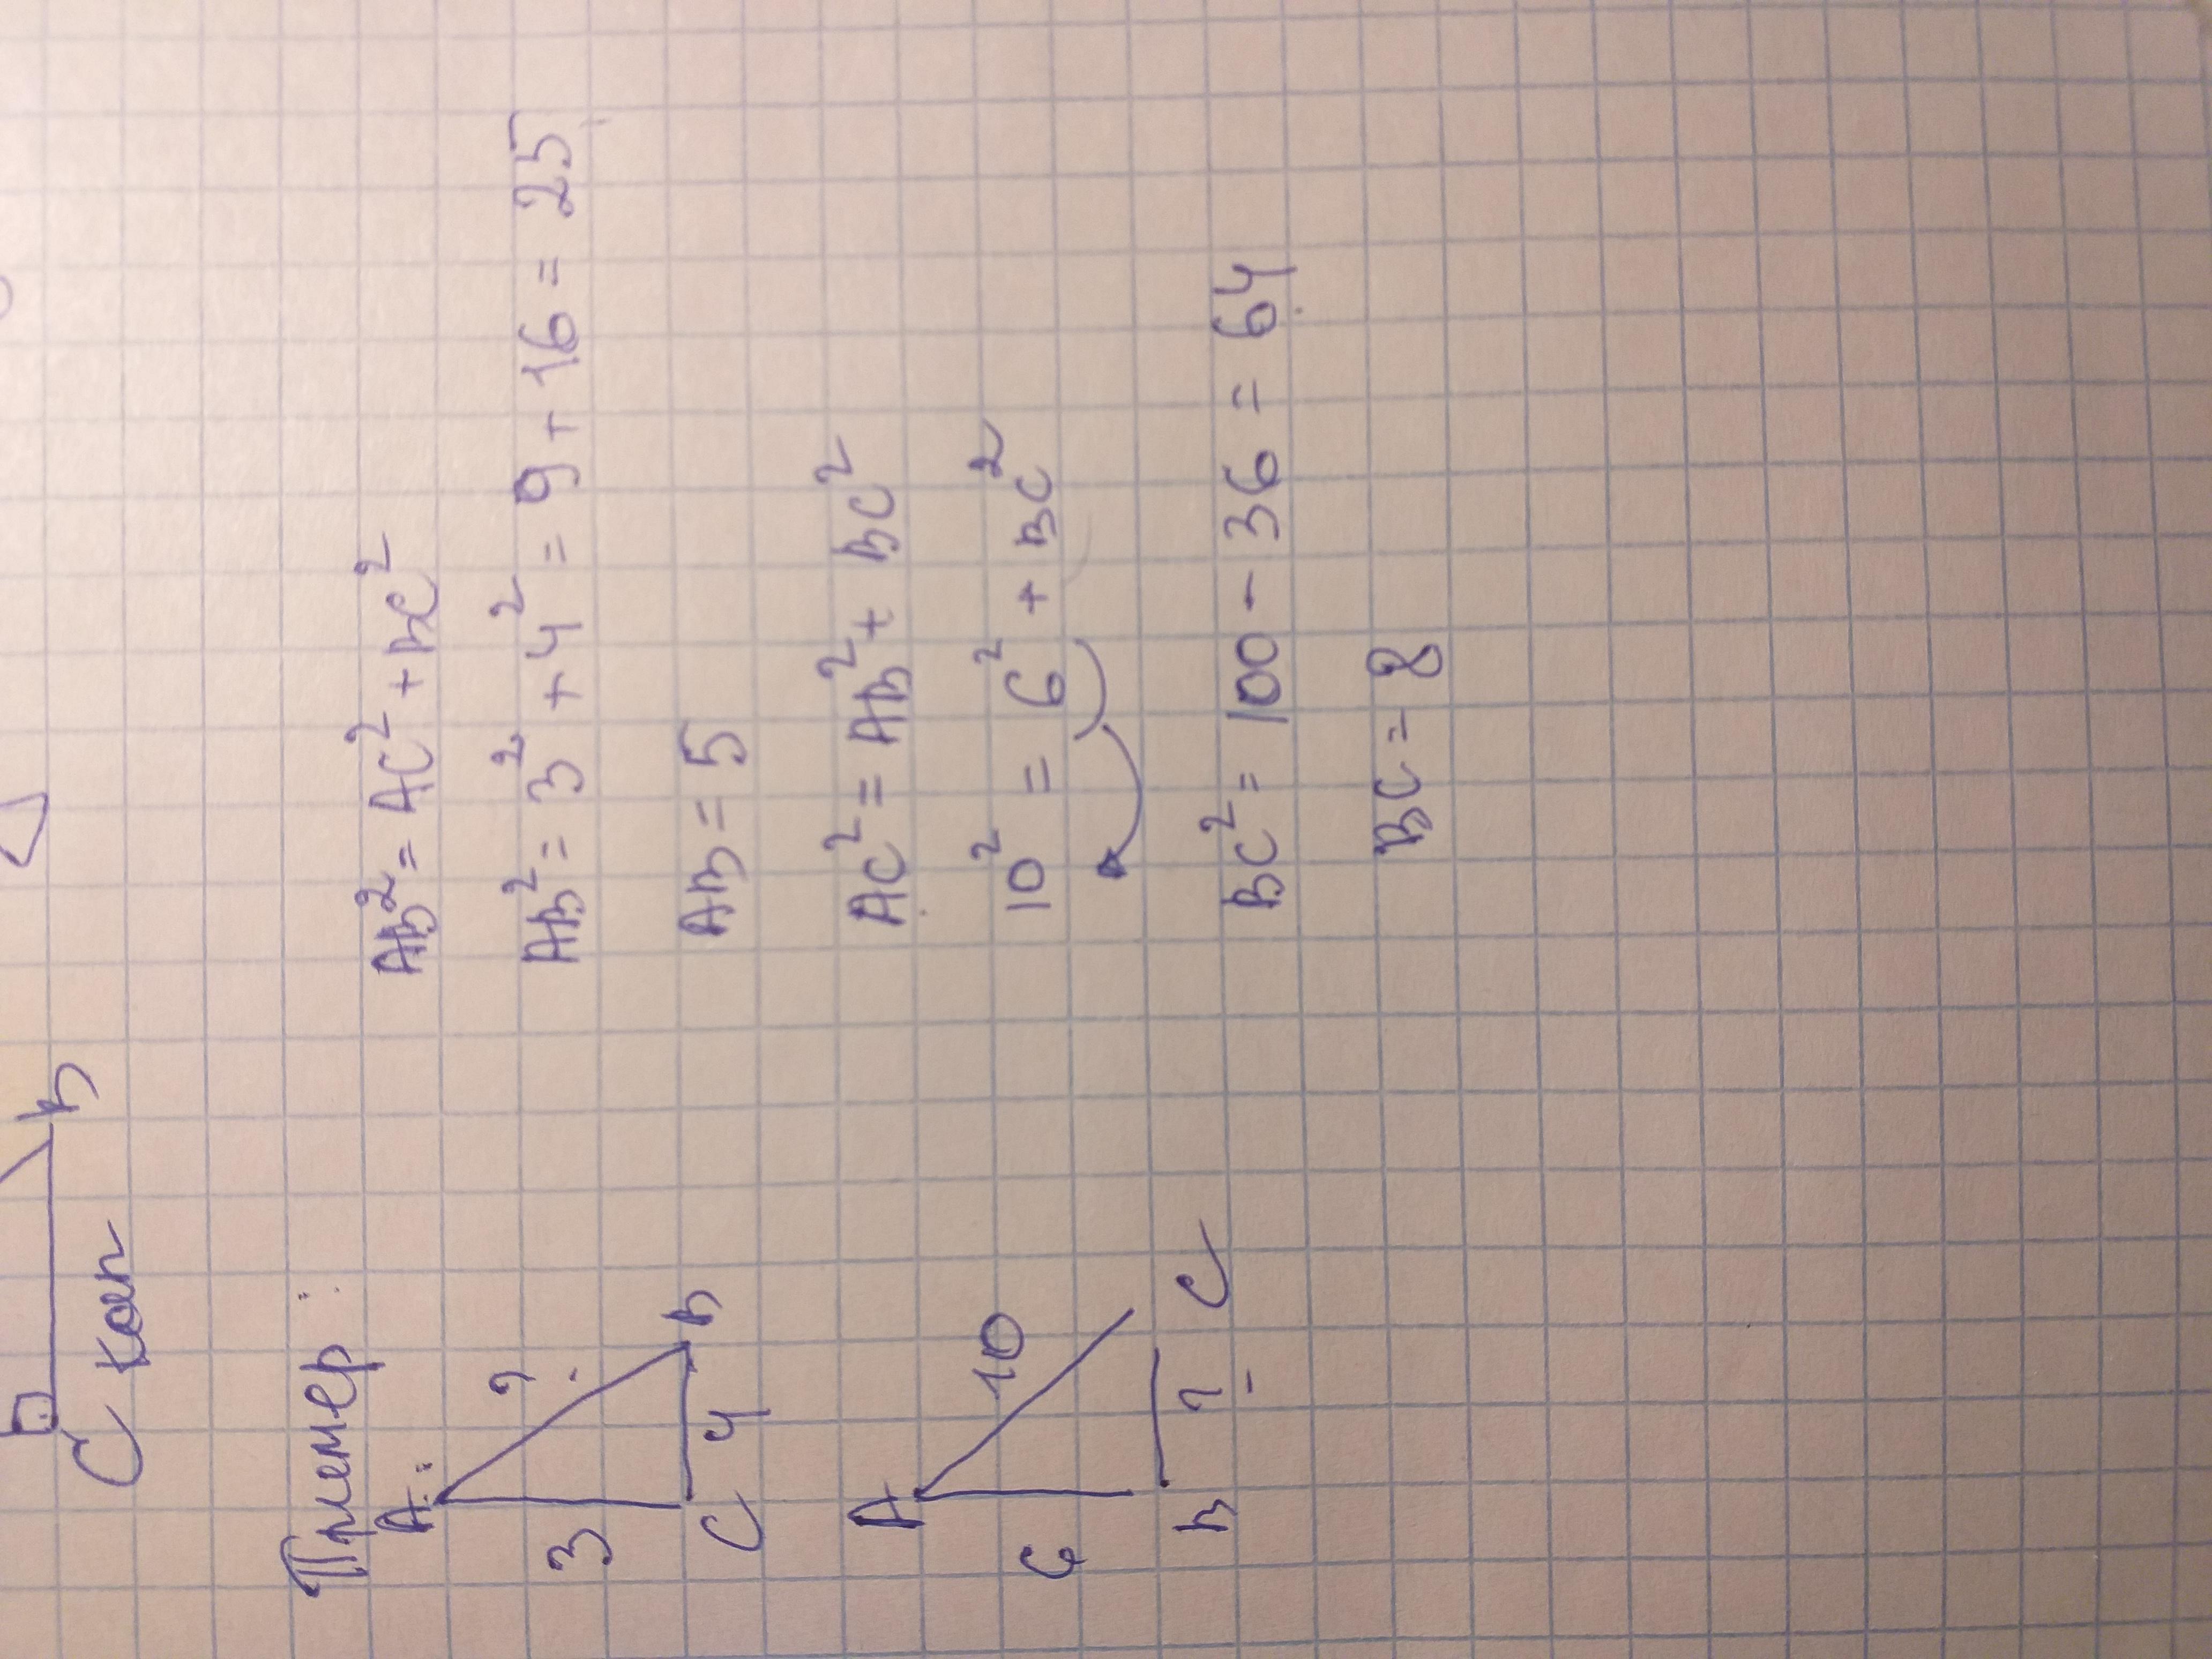 B
C кат
Пример:
A
3 ?
C 4 B
AB² = AC² + BC²
AB² = 3² + 4² = 9 + 16 = 25
AB = 5
A
6 10
B ? C
AC² = AB² + BC²
10² = 6² + BC²
BC² = 100 - 36 = 64
BC = 8